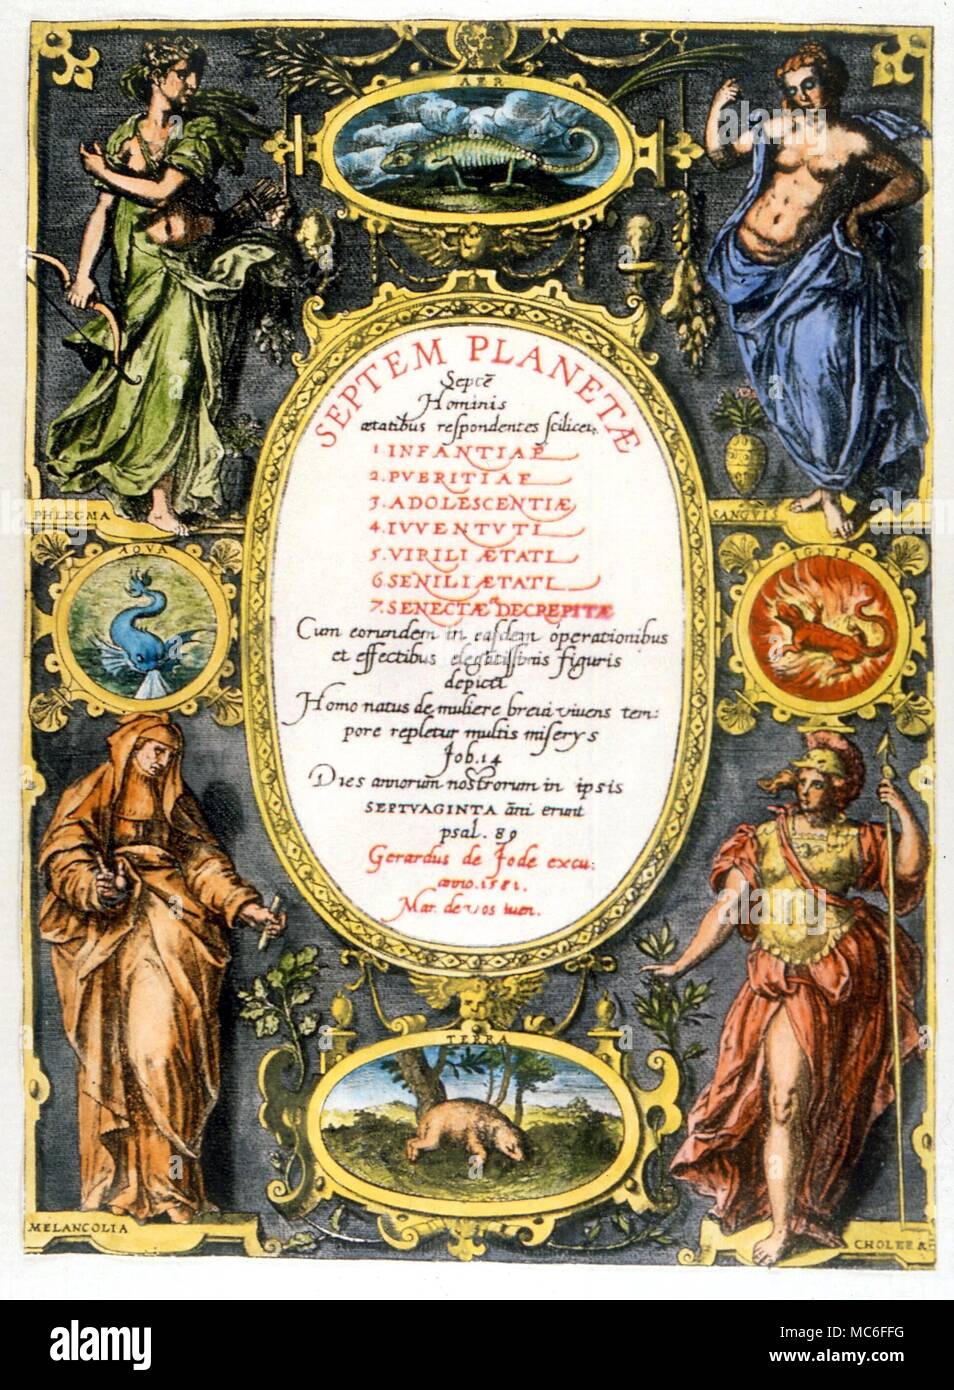 AER
SEPTEM PLANETÆ
Septē
Hominis
ætatibus respondentes scilicet.
1. INFANTIAE
2. PVERITIAE
3. ADOLESCENTIÆ
4. IVVENTVTI
5. VIRILI ÆTATI
6. SENILI ÆTATI
7. SENECTÆ DECREPITÆ
Cum eorundem in easdem operationibus
et effectibus elegātissimis figuris
depicti
Homo natus de muliere brevi vivens tem:
pore repletur multis miserys
Job. 14
Dies annorum nostrorum in ipsis
SEPTVAGINTA āni erunt
psal. 89
Gerardus de Jode excu:
anno. 1581.
Mar. de vos inven.
PHLEGMA
SANGVIS
AQVA
IGNIS
TERRA
MELANCOLIA
CHOLERA
alamy
Image ID: MC6FFG
www.alamy.com